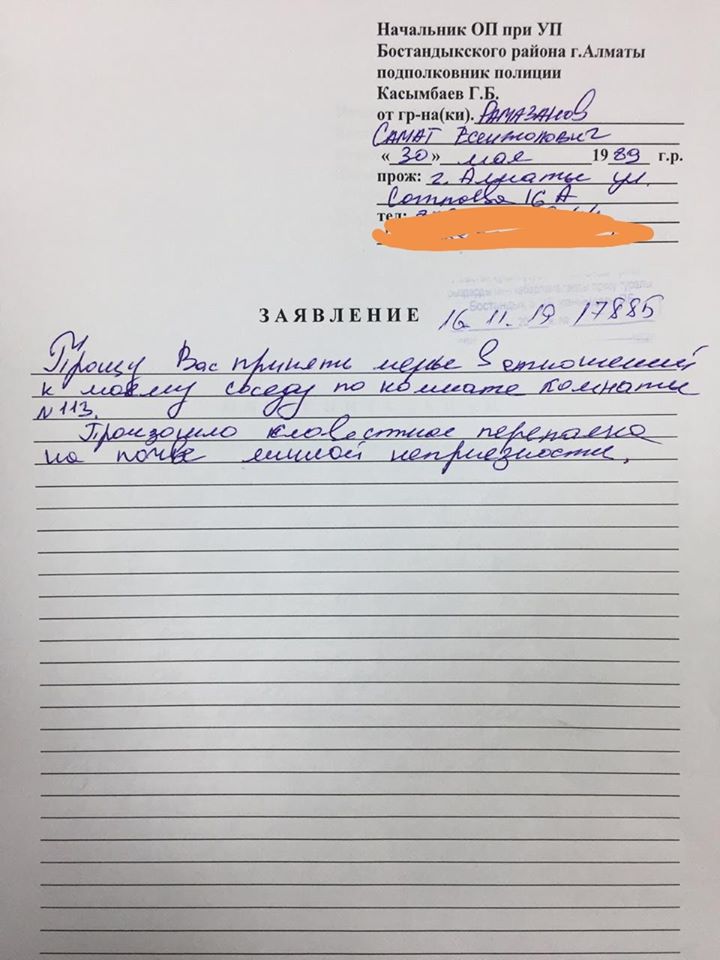 Начальник ОП при УП
Бостандыкского района г.Алматы
подполковник полиции
Касымбаев Г.Б.
от гр-на(ки). Рамазанов
Самат
«30» мая 1989 г.р.
прож: г. Алматы ул.
Сатпаева 16 А
тел:
ЗАЯВЛЕНИЕ 16.11.19 17885
Прошу Вас принять меры в отношений
к моему соседу по комнате комнаты
№113.
Произошло словестное перепалка
на почве личной неприезности.